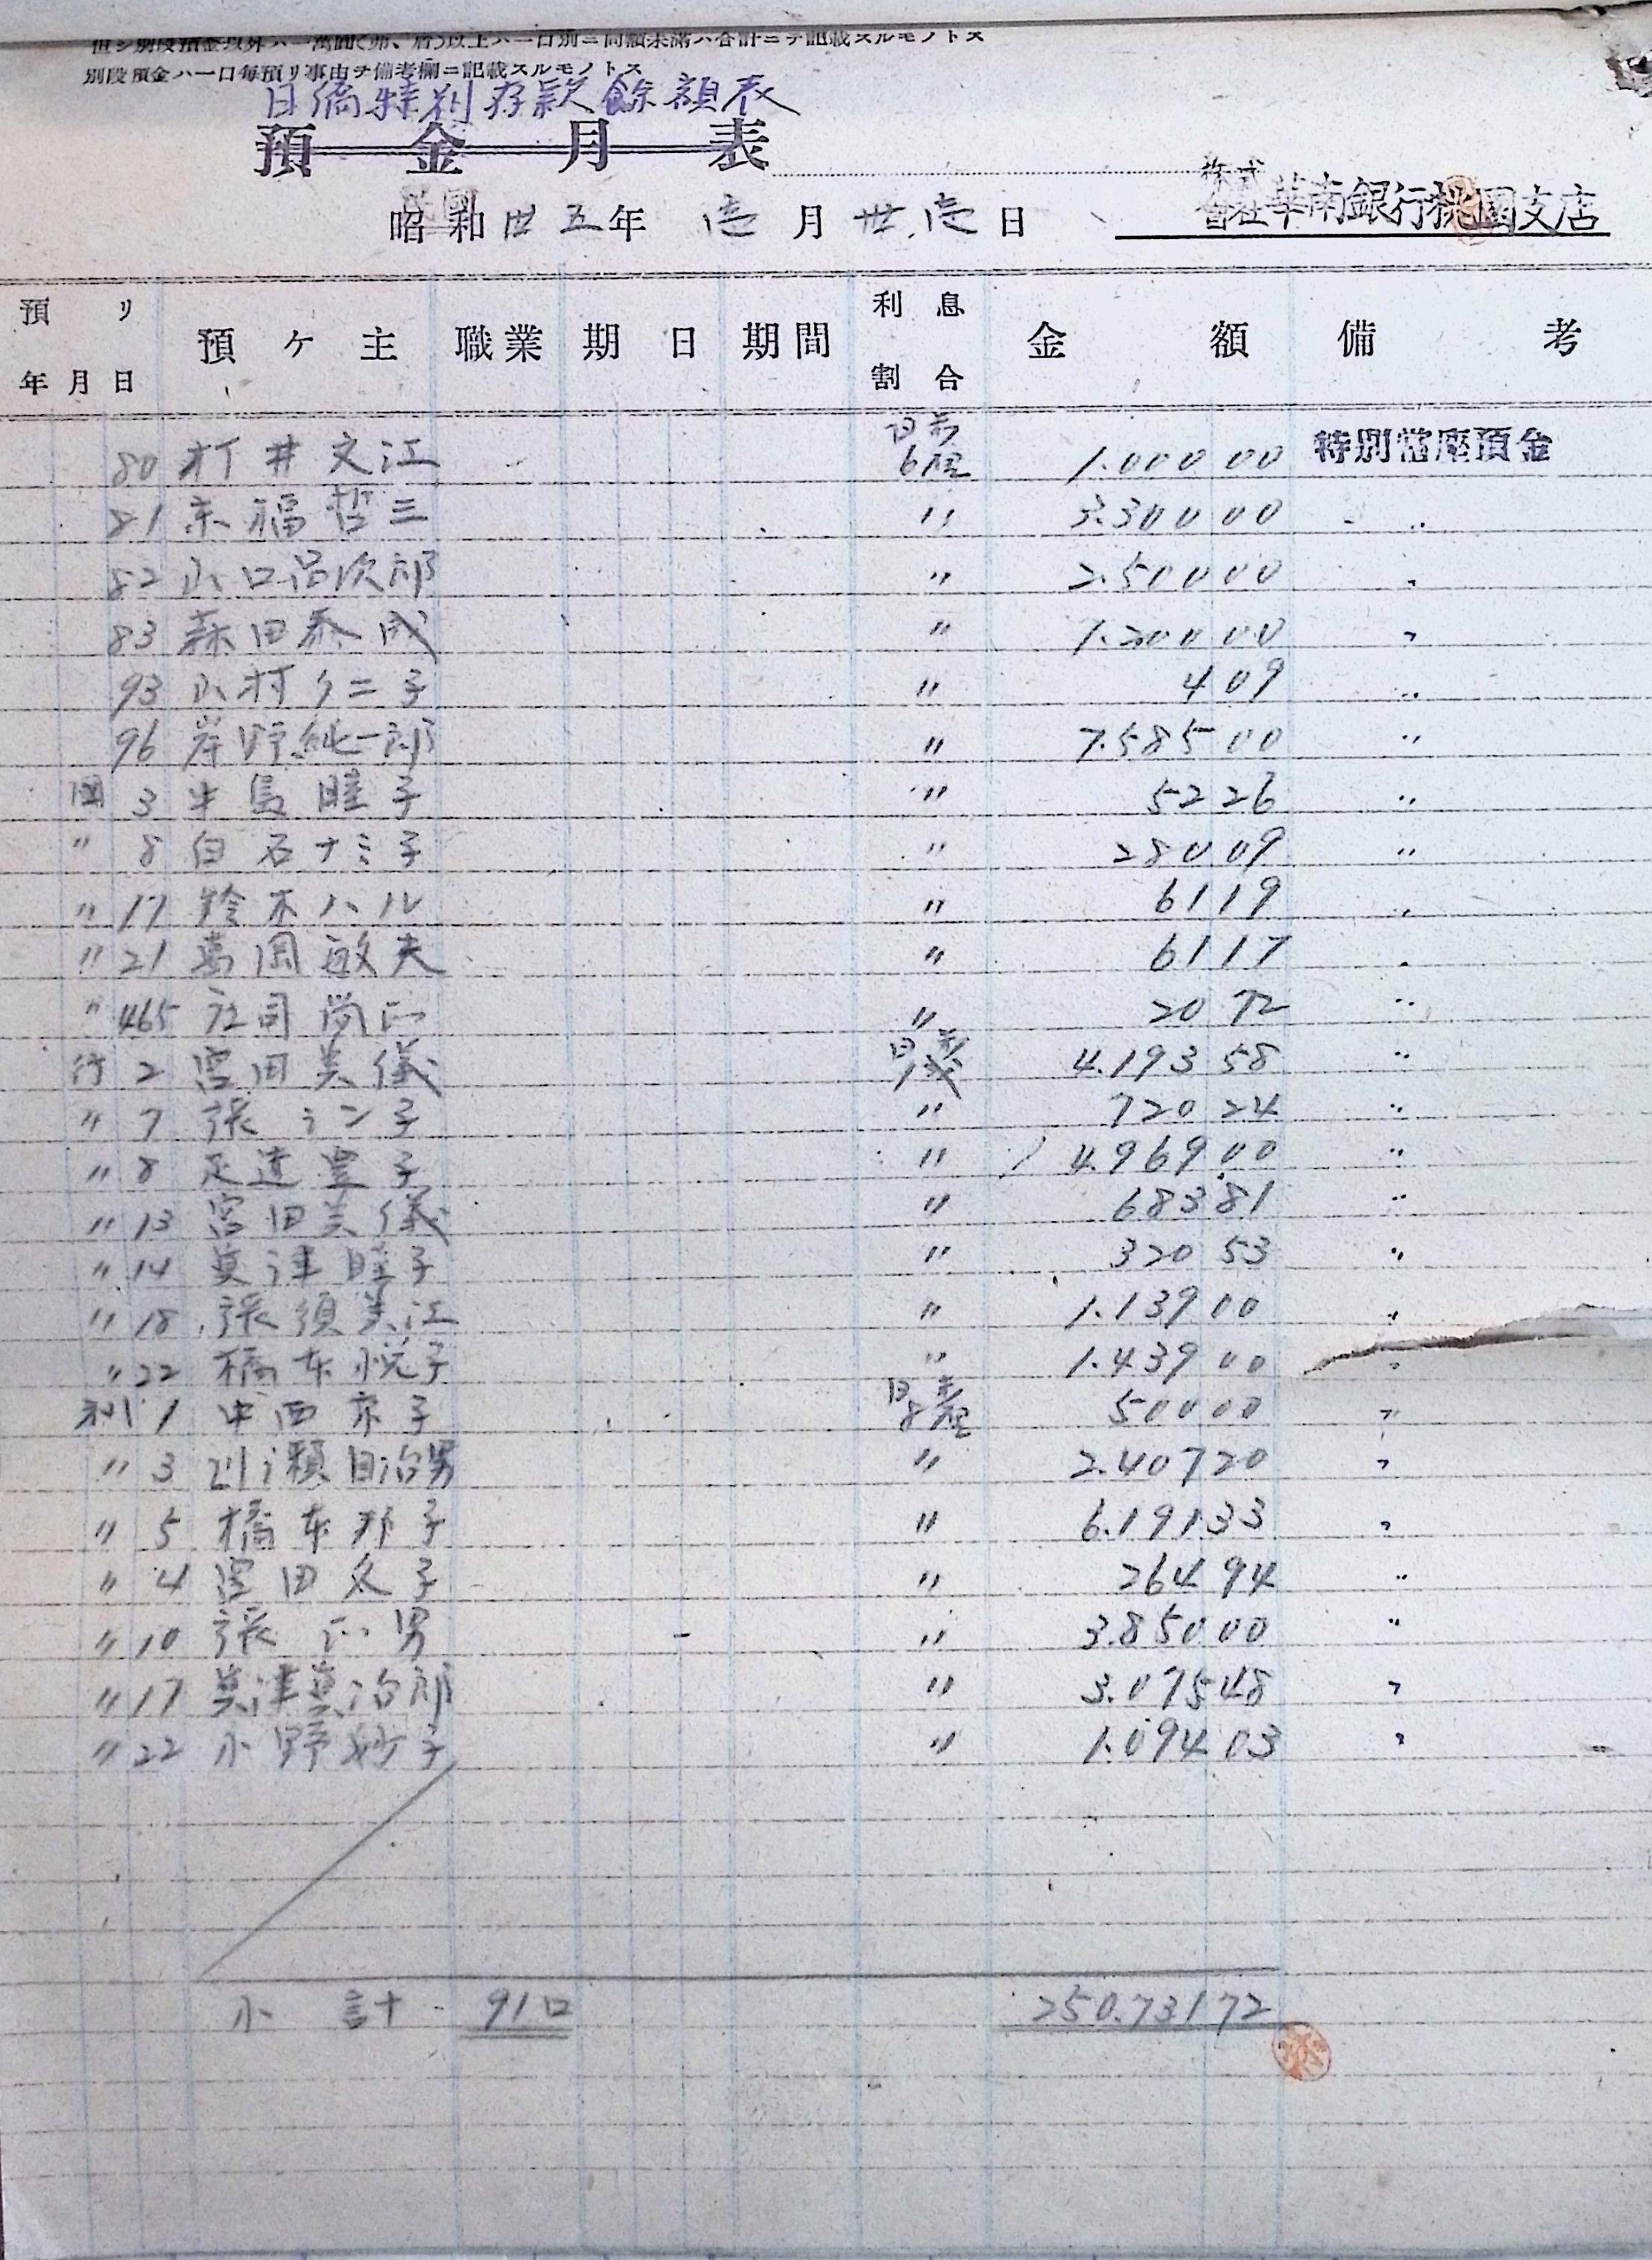 別段預金ハ一口每預リ事由ヲ備考欄ニ記載スルモノトス
日僑特別存款餘額表
預金月表
株式會社華南銀行桃園支店
民國 昭和 卅五年 壱月 卅壱日
預リ年月日 預ケ主 職業 期日 期間 利息割合 金額 備考
80 村井文江 日歩6厘 1.000 00 特別當座預金
81 末福哲三 〃 3.300 00 〃
82 山口吕次郎 〃 2.500 00 〃
83 森田泰成 〃 1.200 00 〃
93 山村クニ子 〃 4 09 〃
96 岸野純一郎 〃 7.585 00 〃
國 3 牛島睦子 〃 52 26 〃
〃 8 白石ナミ子 〃 280 09 〃
〃 17 鈴木ハル 〃 61 19 〃
〃 21 萬岡敏夫 〃 61 17 〃
〃 465 庄司尚正 〃 20 72 〃
行 2 宮田美儀 日歩1戋 4.193 58 〃
〃 7 張シン子 〃 720 24 〃
〃 8 足達豊子 〃 4.969 00 〃
〃 13 宮田美儀 〃 683 81 〃
〃 14 莫津睦子 〃 320 53 〃
〃 18 張須美江 〃 1.139 00 〃
〃 22 橋本悦子 〃 1.439 00 〃
利 1 中西京子 日歩8厘 500 00 〃
〃 3 瀬自治男 〃 2.407 20 〃
〃 5 橋本邦子 〃 6.191 33 〃
〃 4 宮田久子 〃 264 94 〃
〃 10 張正男 〃 3.850 00 〃
〃 17 莫津莫治郎 〃 3.075 48 〃
〃 22 小野妙子 〃 1.094 03 〃
小計 91口 250.731 72